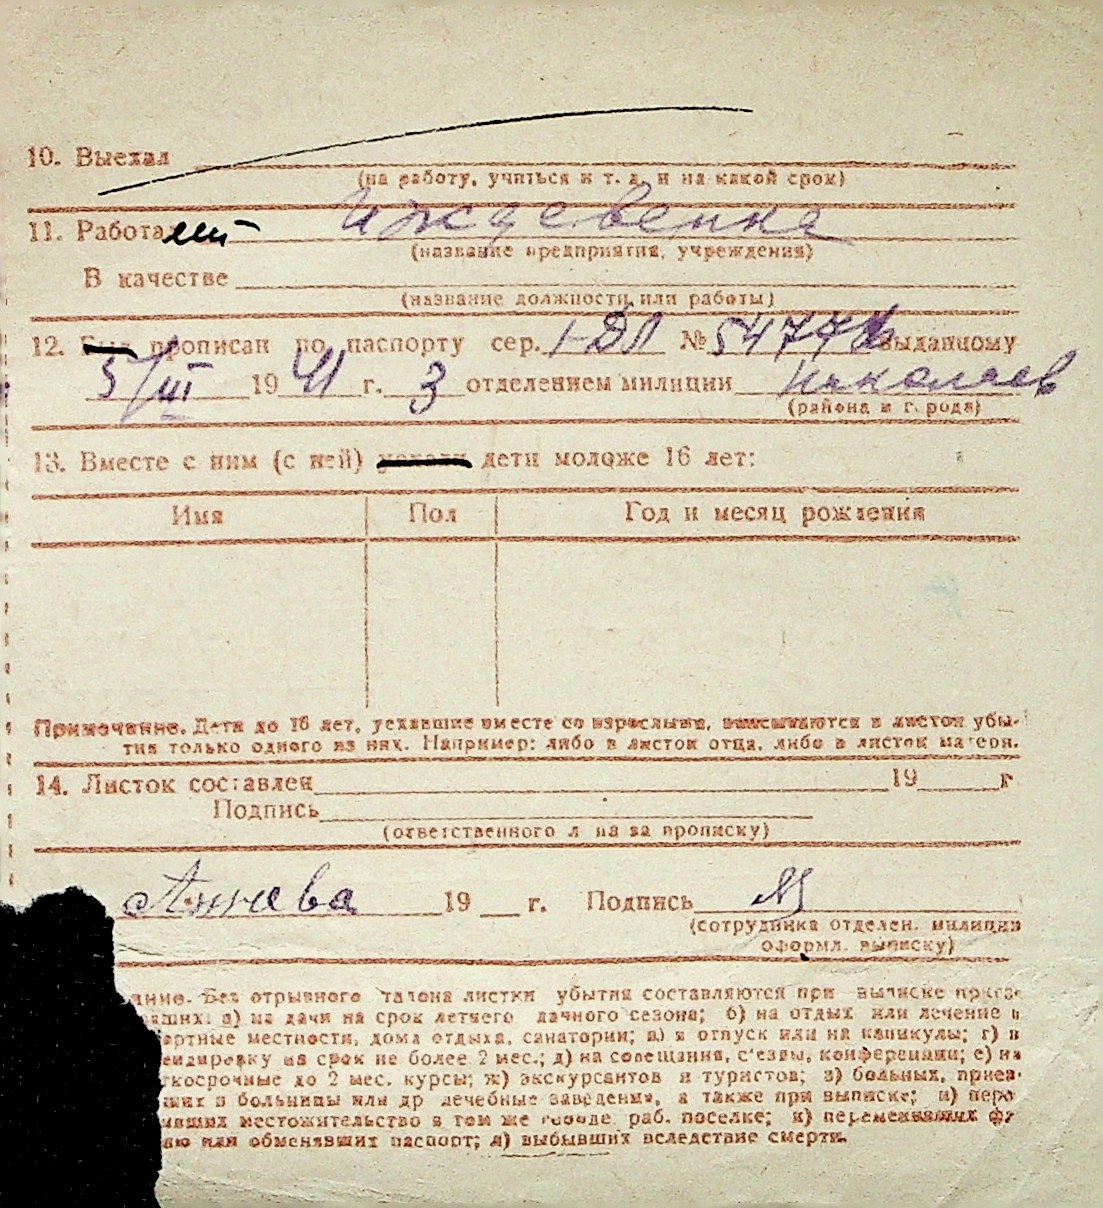 10. Выехал
(на работу, учиться и т. д. и на какой срок)
11. Работает Иждевенка
(название предприятия, учреждения)
В качестве
(название должности или работы)
12. прописан по паспорту сер. I-ДЛ № выданному
5/III 1941 г. 3 отделением милиции Николаев
(района и города)
13. Вместе с ним (с ней) дети моложе 16 лет:
Имя Пол Год и месяц рождения
Примечание. Дети до 16 лет, уехавшие вместе со взрослыми, вписываются в листок убы-
тия только одного из них. Например: либо в листок отца, либо в листок матери.
14. Листок составлен 19 г
Подпись
(ответственного лица за прописку)
19 г. Подпись
(сотрудника отделен. милиции
оформл. выписку)
ание. Без отрывного талона листки убытия составляются при выписке приез-
авших: а) на дачи на срок летнего дачного сезона; б) на отдых или лечение в
ортные местности, дома отдыха, санатории; в) в отпуск или на каникулы; г) в
ендировку на срок не более 2 мес.; д) на совещания, с'езды, конференции; е) на
ткосрочные до 2 мес. курсы; ж) экскурсантов и туристов; з) больных, приез-
ших в больницы или др лечебные заведения, а также при выписке; и) пере
ивших местожительство в том же городе, раб. поселке; к) переменивших фа
ию или обменявших паспорт; л) выбывших вследствие смерти.